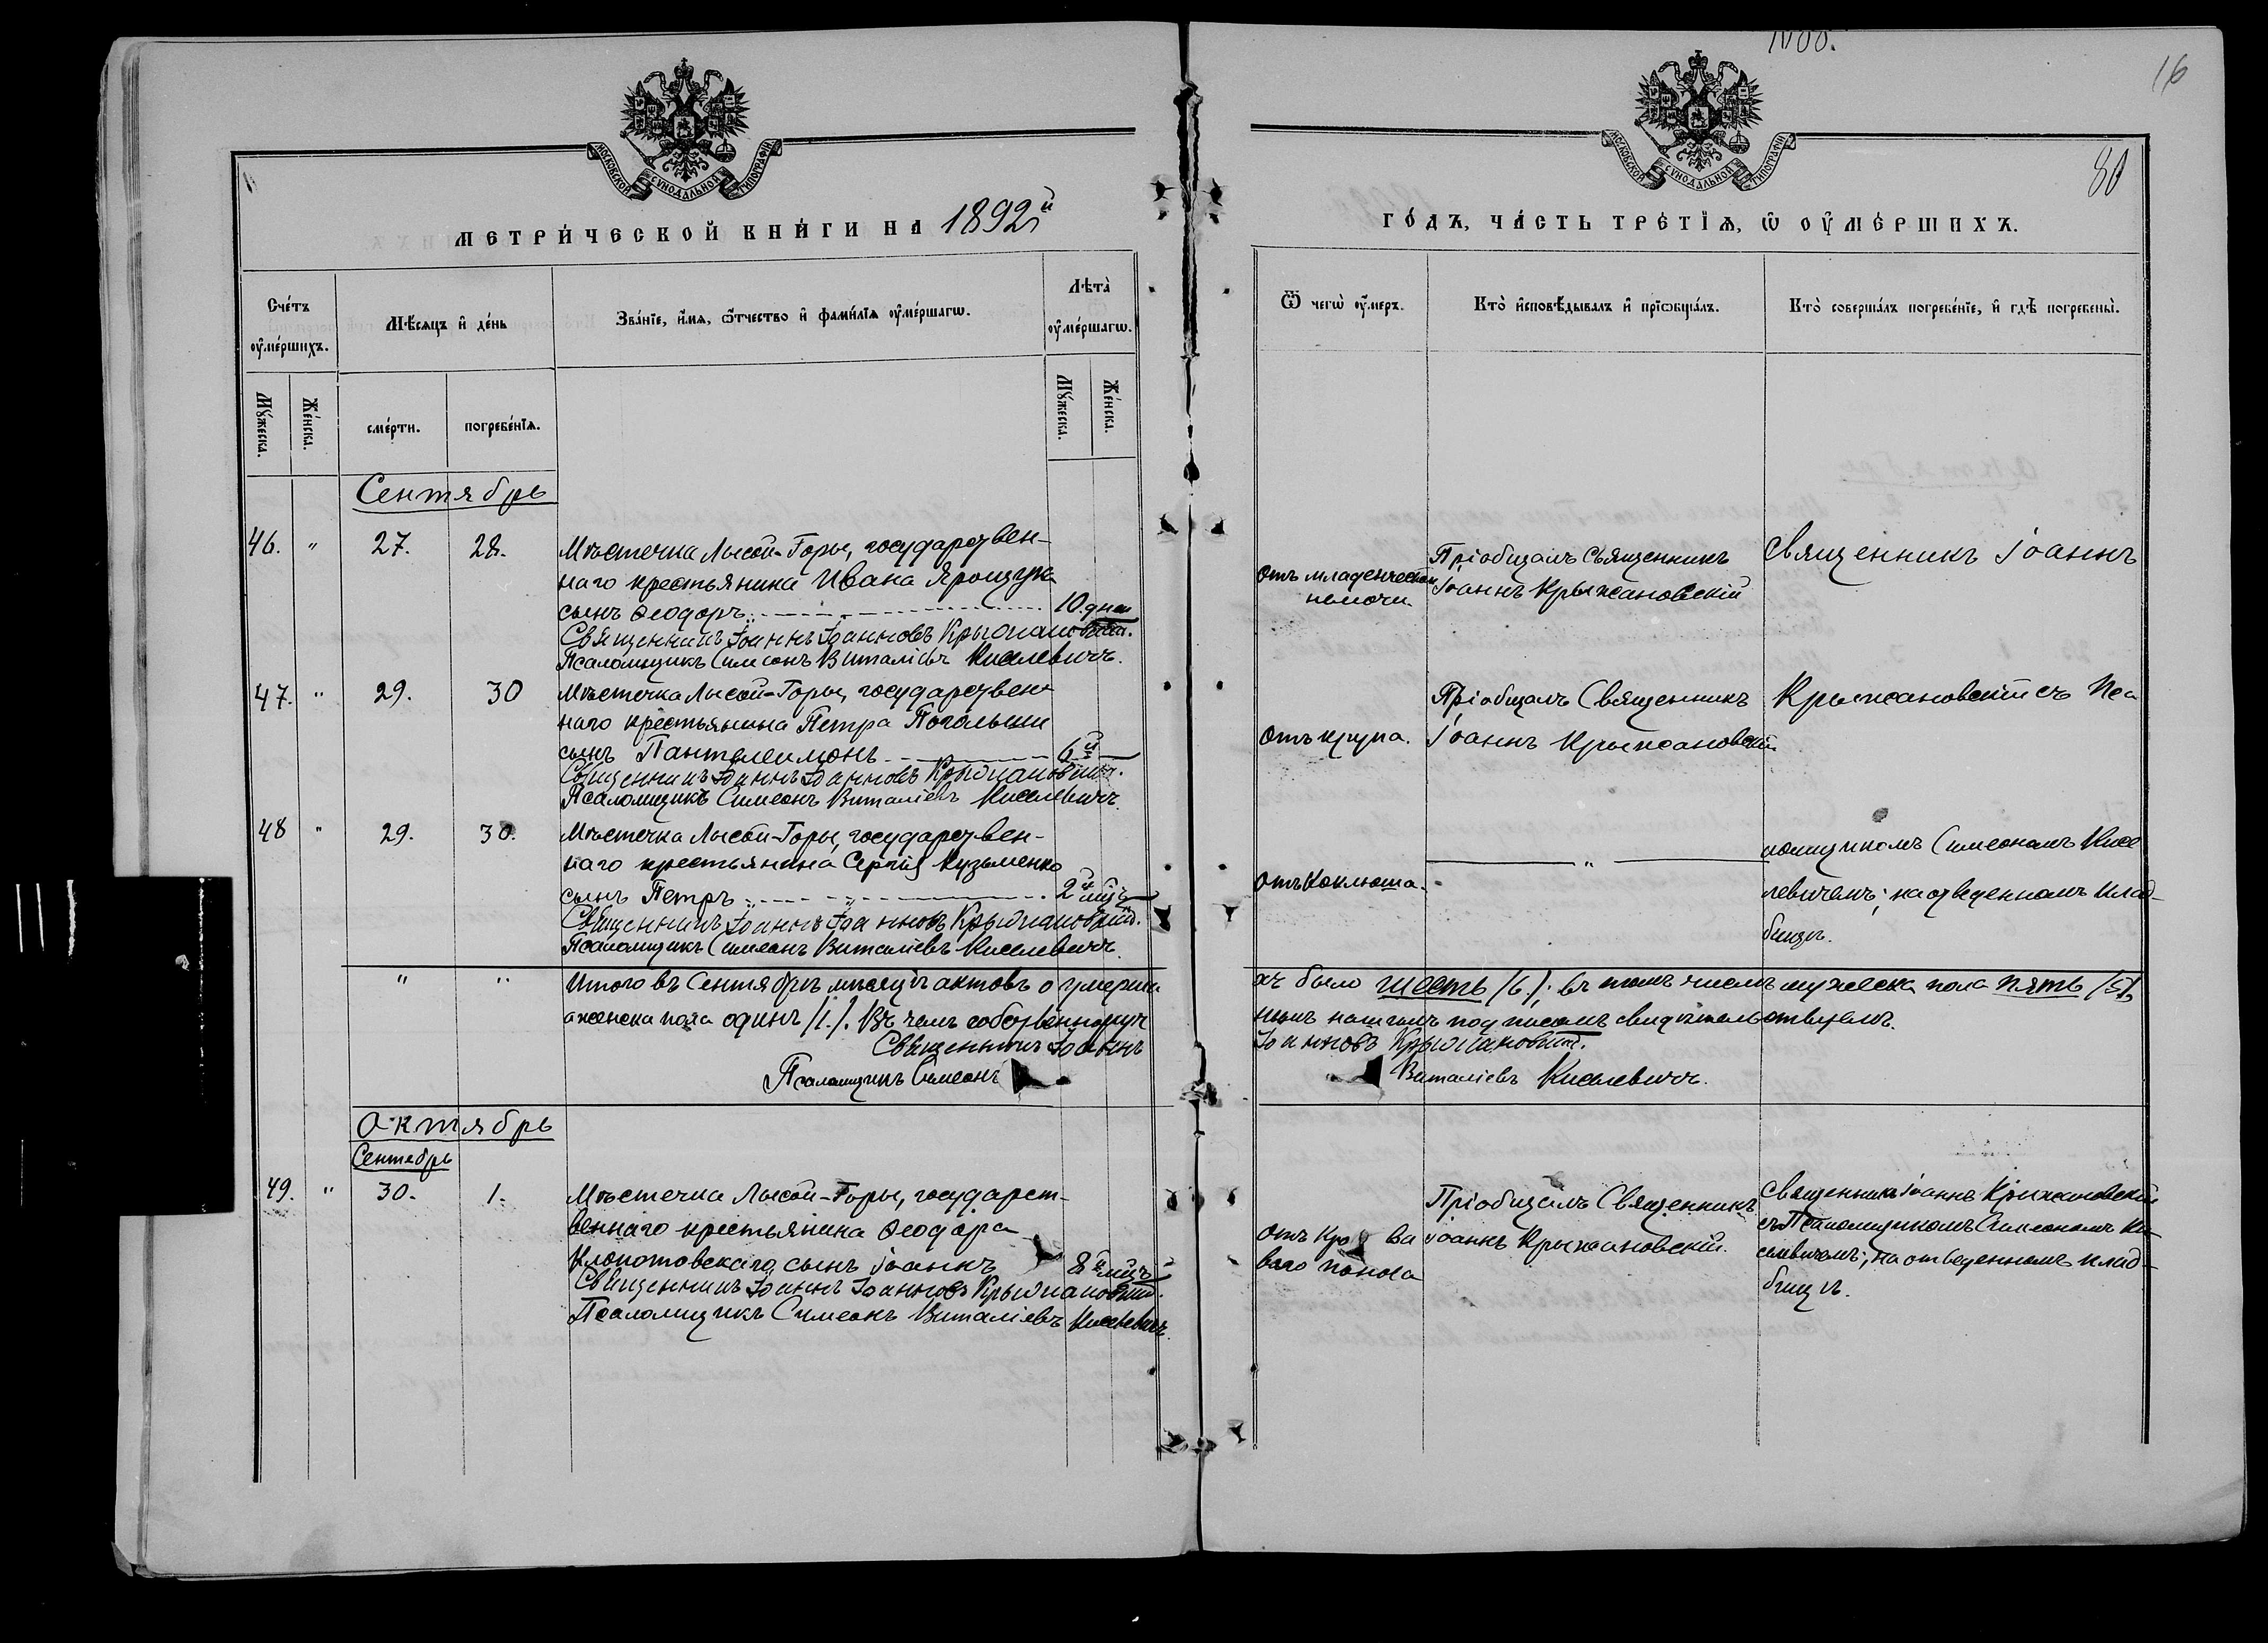 1888.
16
80
МОСКОВСКОЙ СУНОДАЛЬНОЙ ТИПОГРАФІИ
МОСКОВСКОЙ СУНОДАЛЬНОЙ ТИПОГРАФІИ
МЕТРИ́ЧЕСКОЙ КНИ́ГИ НА 1892й
ГО́ДЪ, ЧА́СТЬ ТРЕ́ТІѦ, Ѿ ОУ҆МЕ́РШИХЪ.
Сче́тъ оу҆ме́ршихъ.
Мѣ́сяцъ и҆ де́нь
Зва́нїе, и҆́мя, ѻ҆́тчество и҆ фами́лїя оу҆ме́ршагѡ.
Лѣта̀ оу҆ме́ршагѡ.
Ѿ чегѡ̀ оу҆́меръ.
Кто̀ и҆сповѣ́дывалъ и҆ прїѡбща́лъ.
Кто̀ соверша́лъ погребе́нїе, и҆ гдѣ̀ погребены̀.
Му́жеска.
Же́нска.
сме́рти.
погребе́нїѧ.
Му́жеска.
Же́нска.
Сентябрь
46. " 27. 28. Мѣстечка Лысой-Горы, государствен-
наго крестьянина Ивана Ярощука
сынъ Ѳеодоръ 10. дней
Священникъ Іоаннъ Іоанновъ Крыжановскій.
Псаломщикъ Симеонъ Виталіевъ Киселевичъ.
Отъ младенческой
немочи.
Пріобщалъ Священникъ
Іоаннъ Крыжановскій
Священникъ Іоаннъ
47. " 29. 30 Мѣстечка Лысой-Горы, государствен-
наго крестьянина Петра
сынъ Пантелеимонъ 6й
Священникъ Іоаннъ Іоанновъ Крыжановскій.
Псаломщикъ Симеонъ Виталіевъ Киселевичъ.
Отъ крупа.
Пріобщалъ Священникъ
Іоаннъ Крыжановскій
Крыжановскій съ Пса
48 " 29. 30. Мѣстечка Лысой-Горы, государствен-
наго крестьянина Сергія Кузьменко
сынъ Петръ 2й мѣц
Священникъ Іоаннъ Іоанновъ Крыжановскій.
Псаломщикъ Симеонъ Виталіевъ Киселевичъ.
Отъ Коклюша.
"
ломщикомъ Симеономъ Кисе
левичемъ; на отведенномъ клад-
бищѣ.
" " Итого въ Сентябрѣ мѣсяцѣ актовъ о умерши
хъ было шесть /6/; въ томъ числѣ мужеска пола пять /5/,
а женска пола одинъ /1./. Въ чемъ собственноруч
нымъ нашимъ подписомъ свидѣтельствуемъ.
Священникъ Іоаннъ
Іоанновъ Крыжановскій.
Псаломщикъ Симеонъ
Виталіевъ Киселевичъ.
Октябрь
Сентябрь
49. " 30. 1. Мѣстечка Лысой-Горы, государст-
веннаго крестьянина Ѳеодора
Клопотовскаго сынъ Іоаннъ 8й мцъ
Священникъ Іоаннъ Іоанновъ Крыжановскій.
Псаломщикъ Симеонъ Виталіевъ Киселевичъ.
Отъ Крова
ваго поноса
Пріобщалъ Священникъ
Іоаннъ Крыжановскій.
Священникъ Іоаннъ Крыжановскій
съ Псаломщикомъ Симеономъ Ки-
селевичемъ; на отведенномъ клад-
бищѣ.